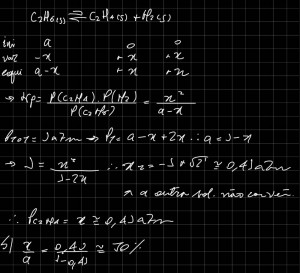 C₂H₆(g) ⇌ C₂H₄(g) + H₂(g)
ini a 0 0
var -x +x +x
equi a-x +x +x
→ Kp = P(C₂H₄).P(H₂) / P(C₂H₆) = x² / a-x
PTOT = 1atm → PT = a-x+2x ∴ a = 1-x
→ 1 = x² / 1-2x ∴ x = -1+√2 ≅ 0,41atm
* a outra sol. não convém
∴ PC₂H₄ = x ≅ 0,41atm
b) x/a = 0,41 / 1-0,41 ≅ 70%